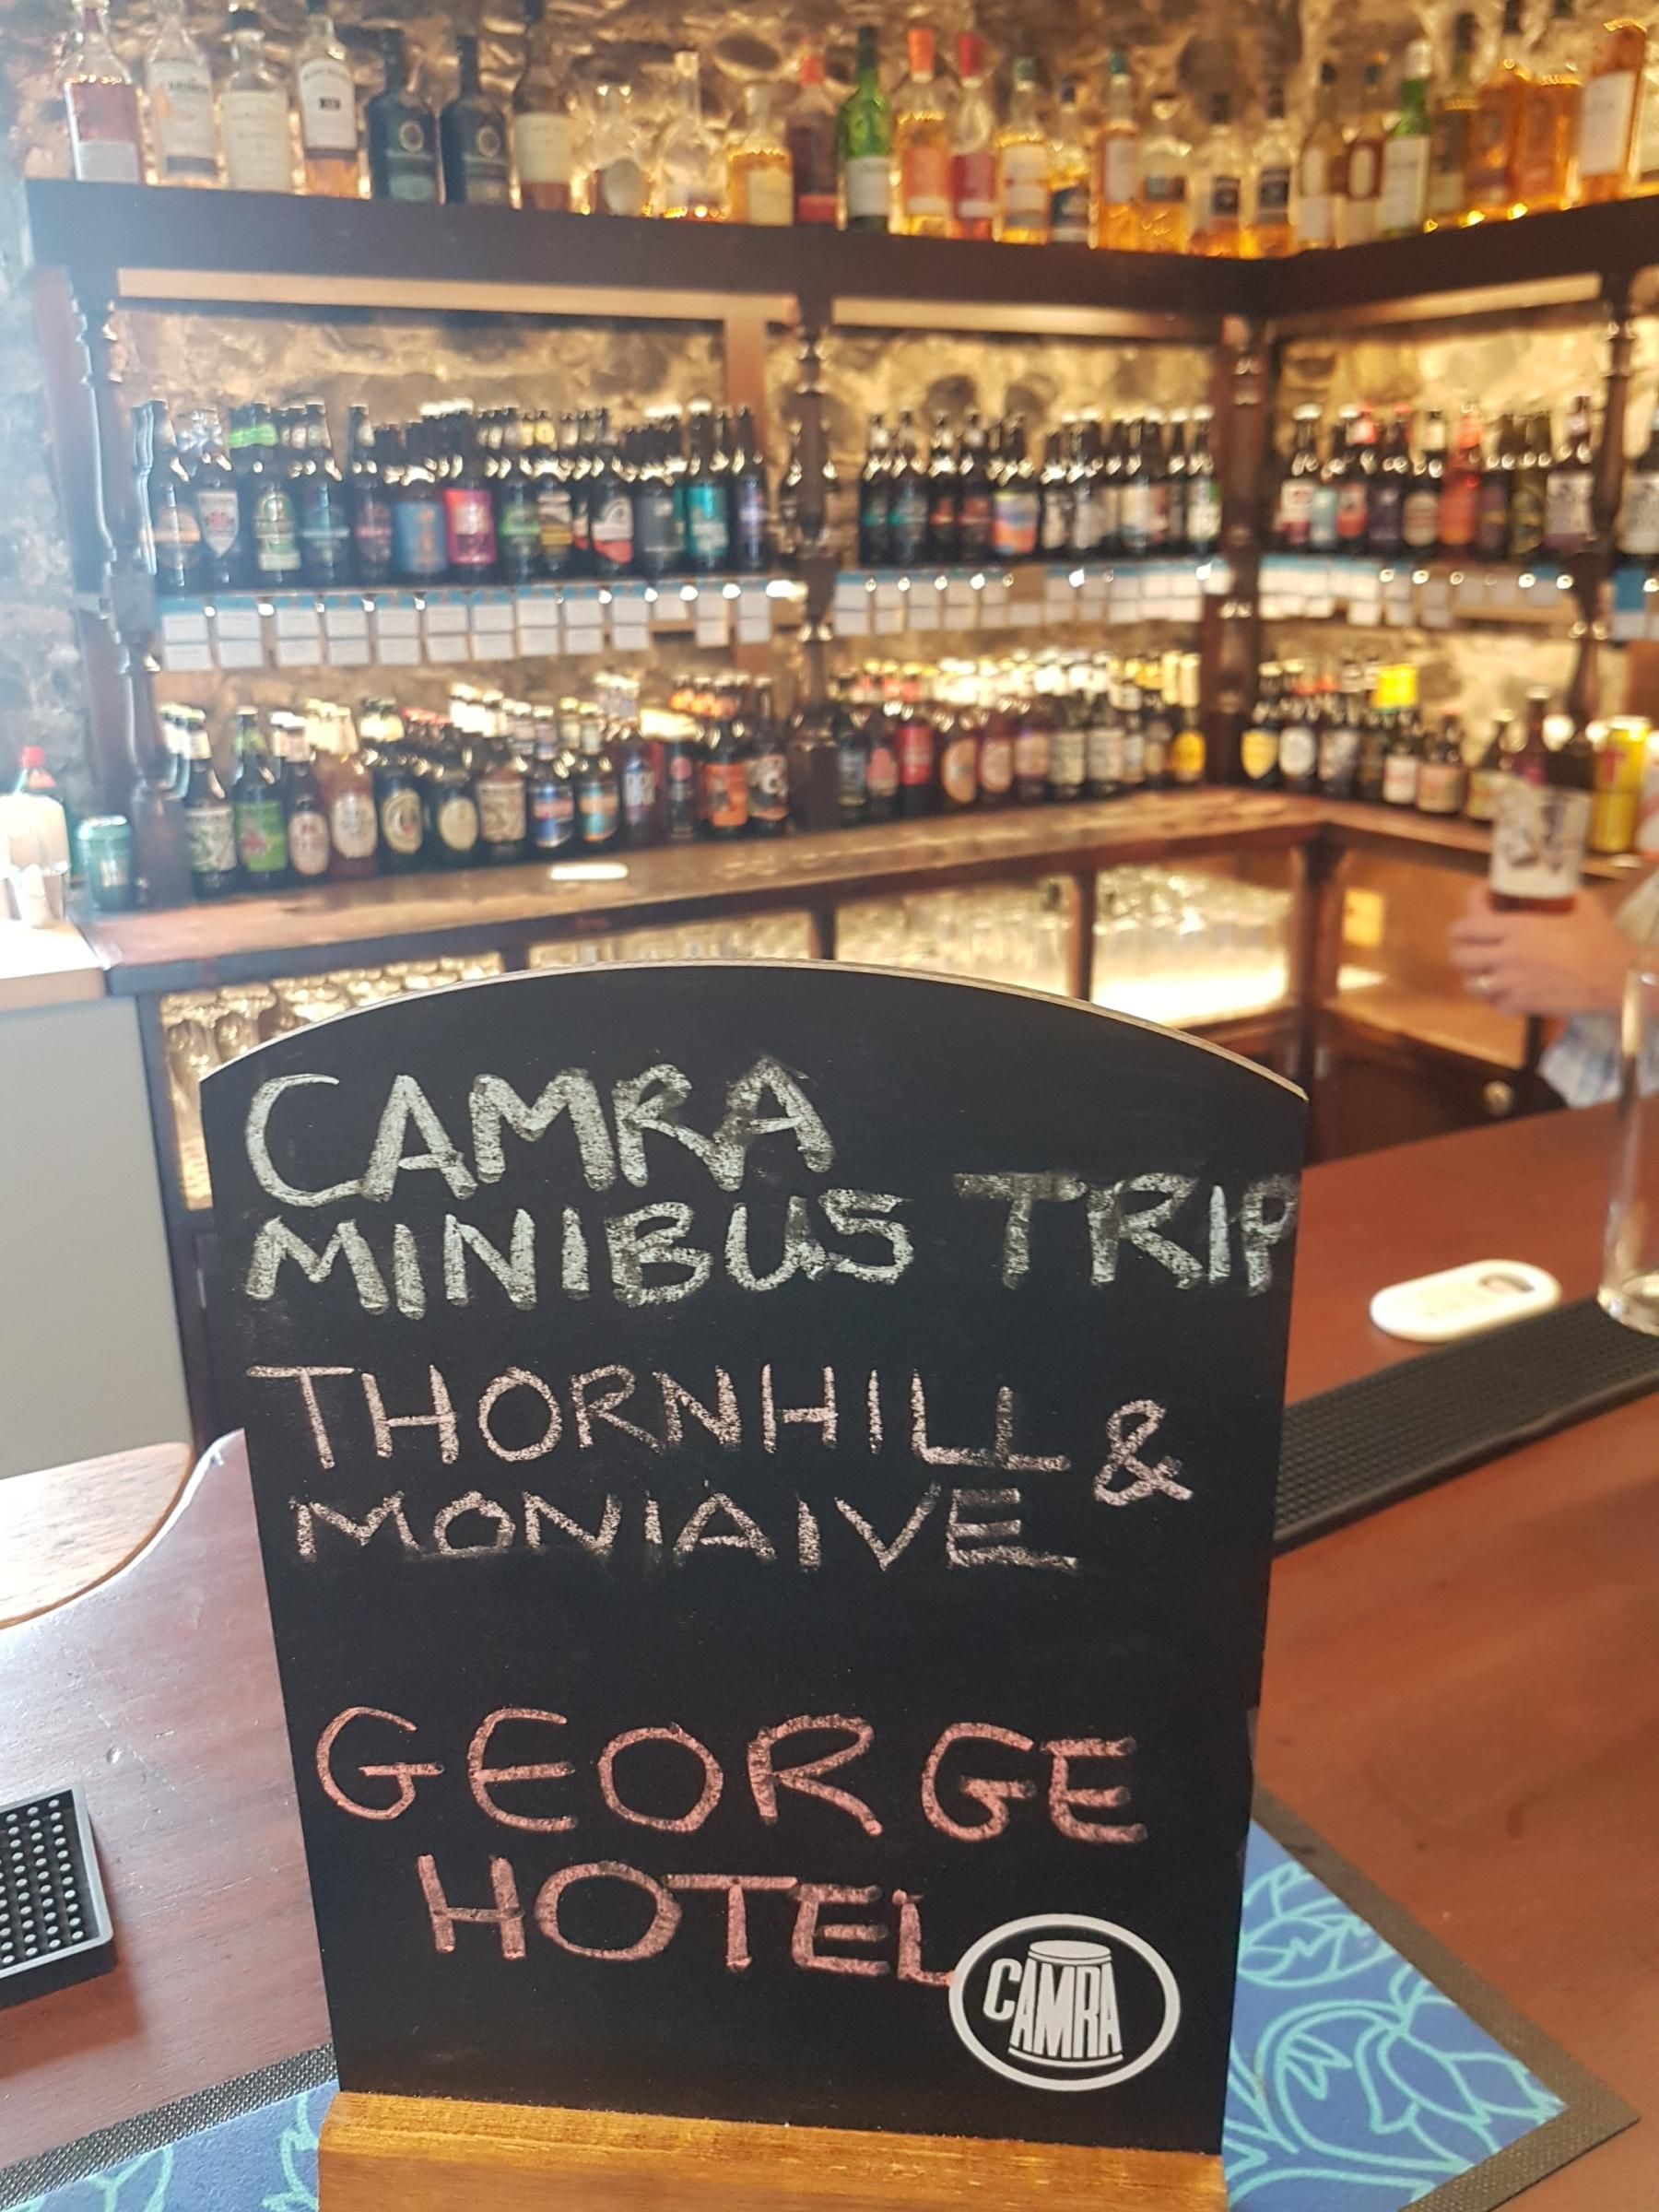 CAMRA
MINIBUS TRIP
THORNHILL &
MONIAIVE
GEORGE
HOTEL
CAMRA